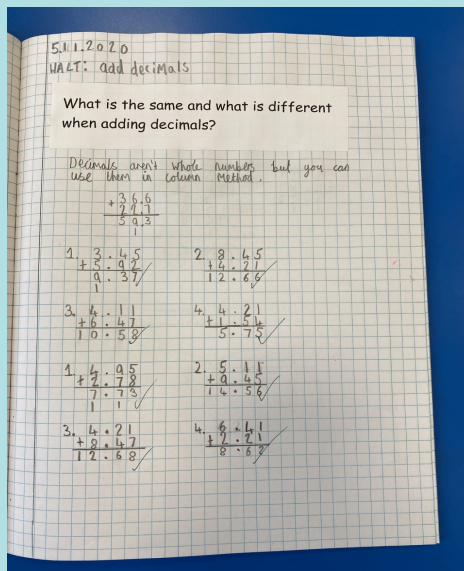 5.11.2020
WALT: add decimals
What is the same and what is different
when adding decimals?
Decimals aren't whole numbers but you can
use them in column method.
36.6
+ 22.7
59.3
1
1. 3.45
+5.92
9.37
1
2. 8.45
+4.21
12.66
3. 4.11
+6.47
10.58
4. 4.21
+1.54
5.75
1. 4.95
+2.78
7.73
1 1
2. 5.11
+9.45
14.56
3. 4.21
+8.47
12.68
4. 6.41
+2.21
8.62